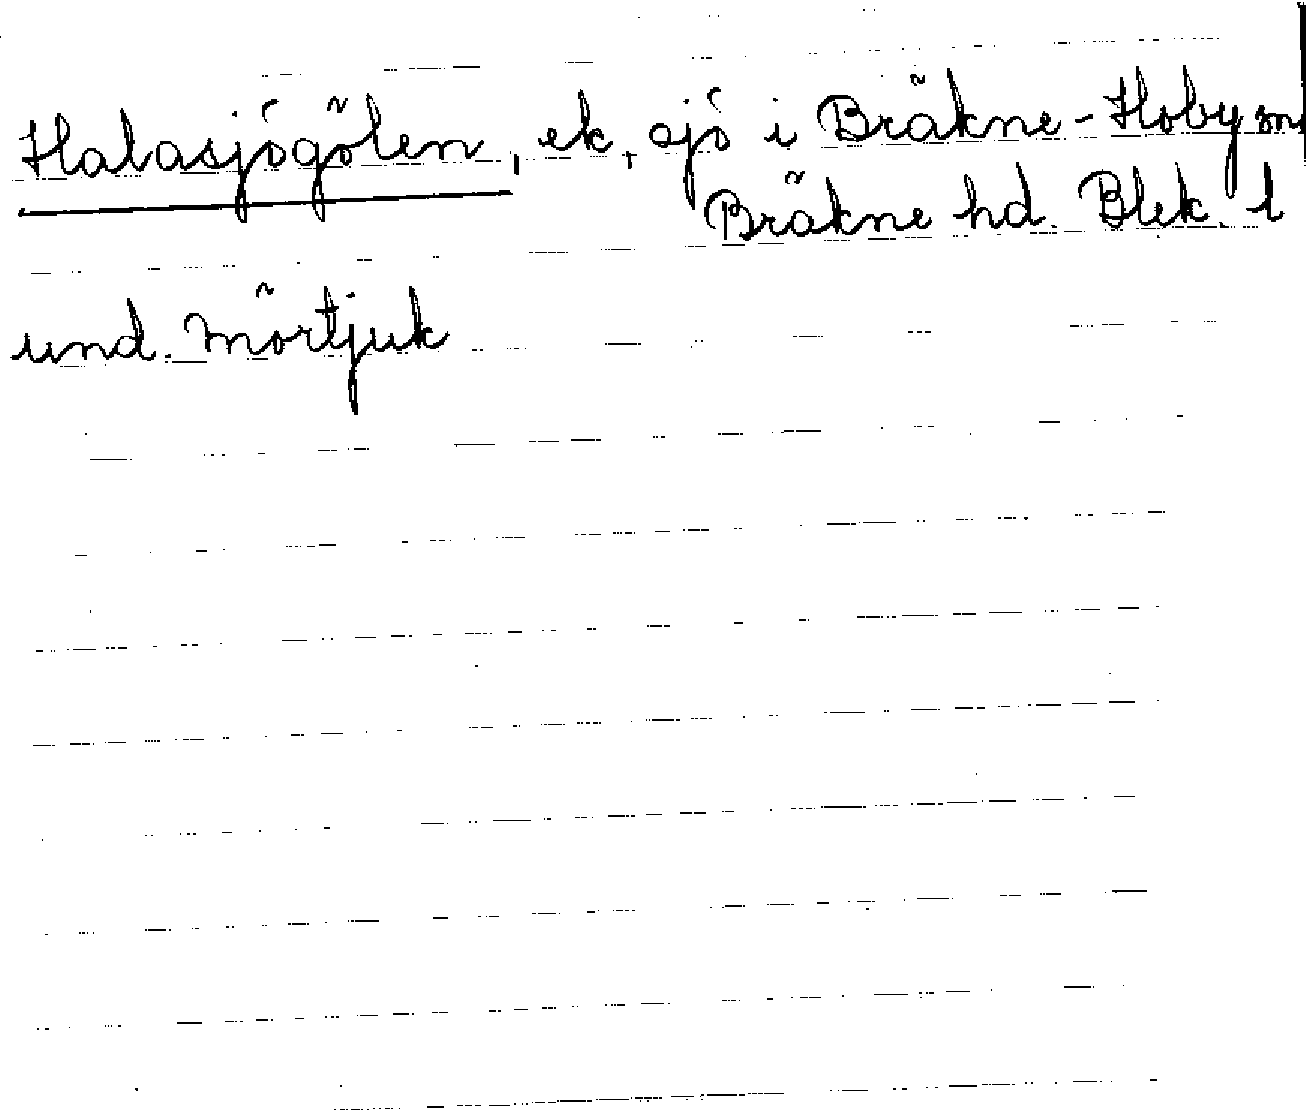 Halasjögölen, ek, sjö i Bräkne-Hoby sn
Bräkne hd. Blek. l
und. Mörtjuk